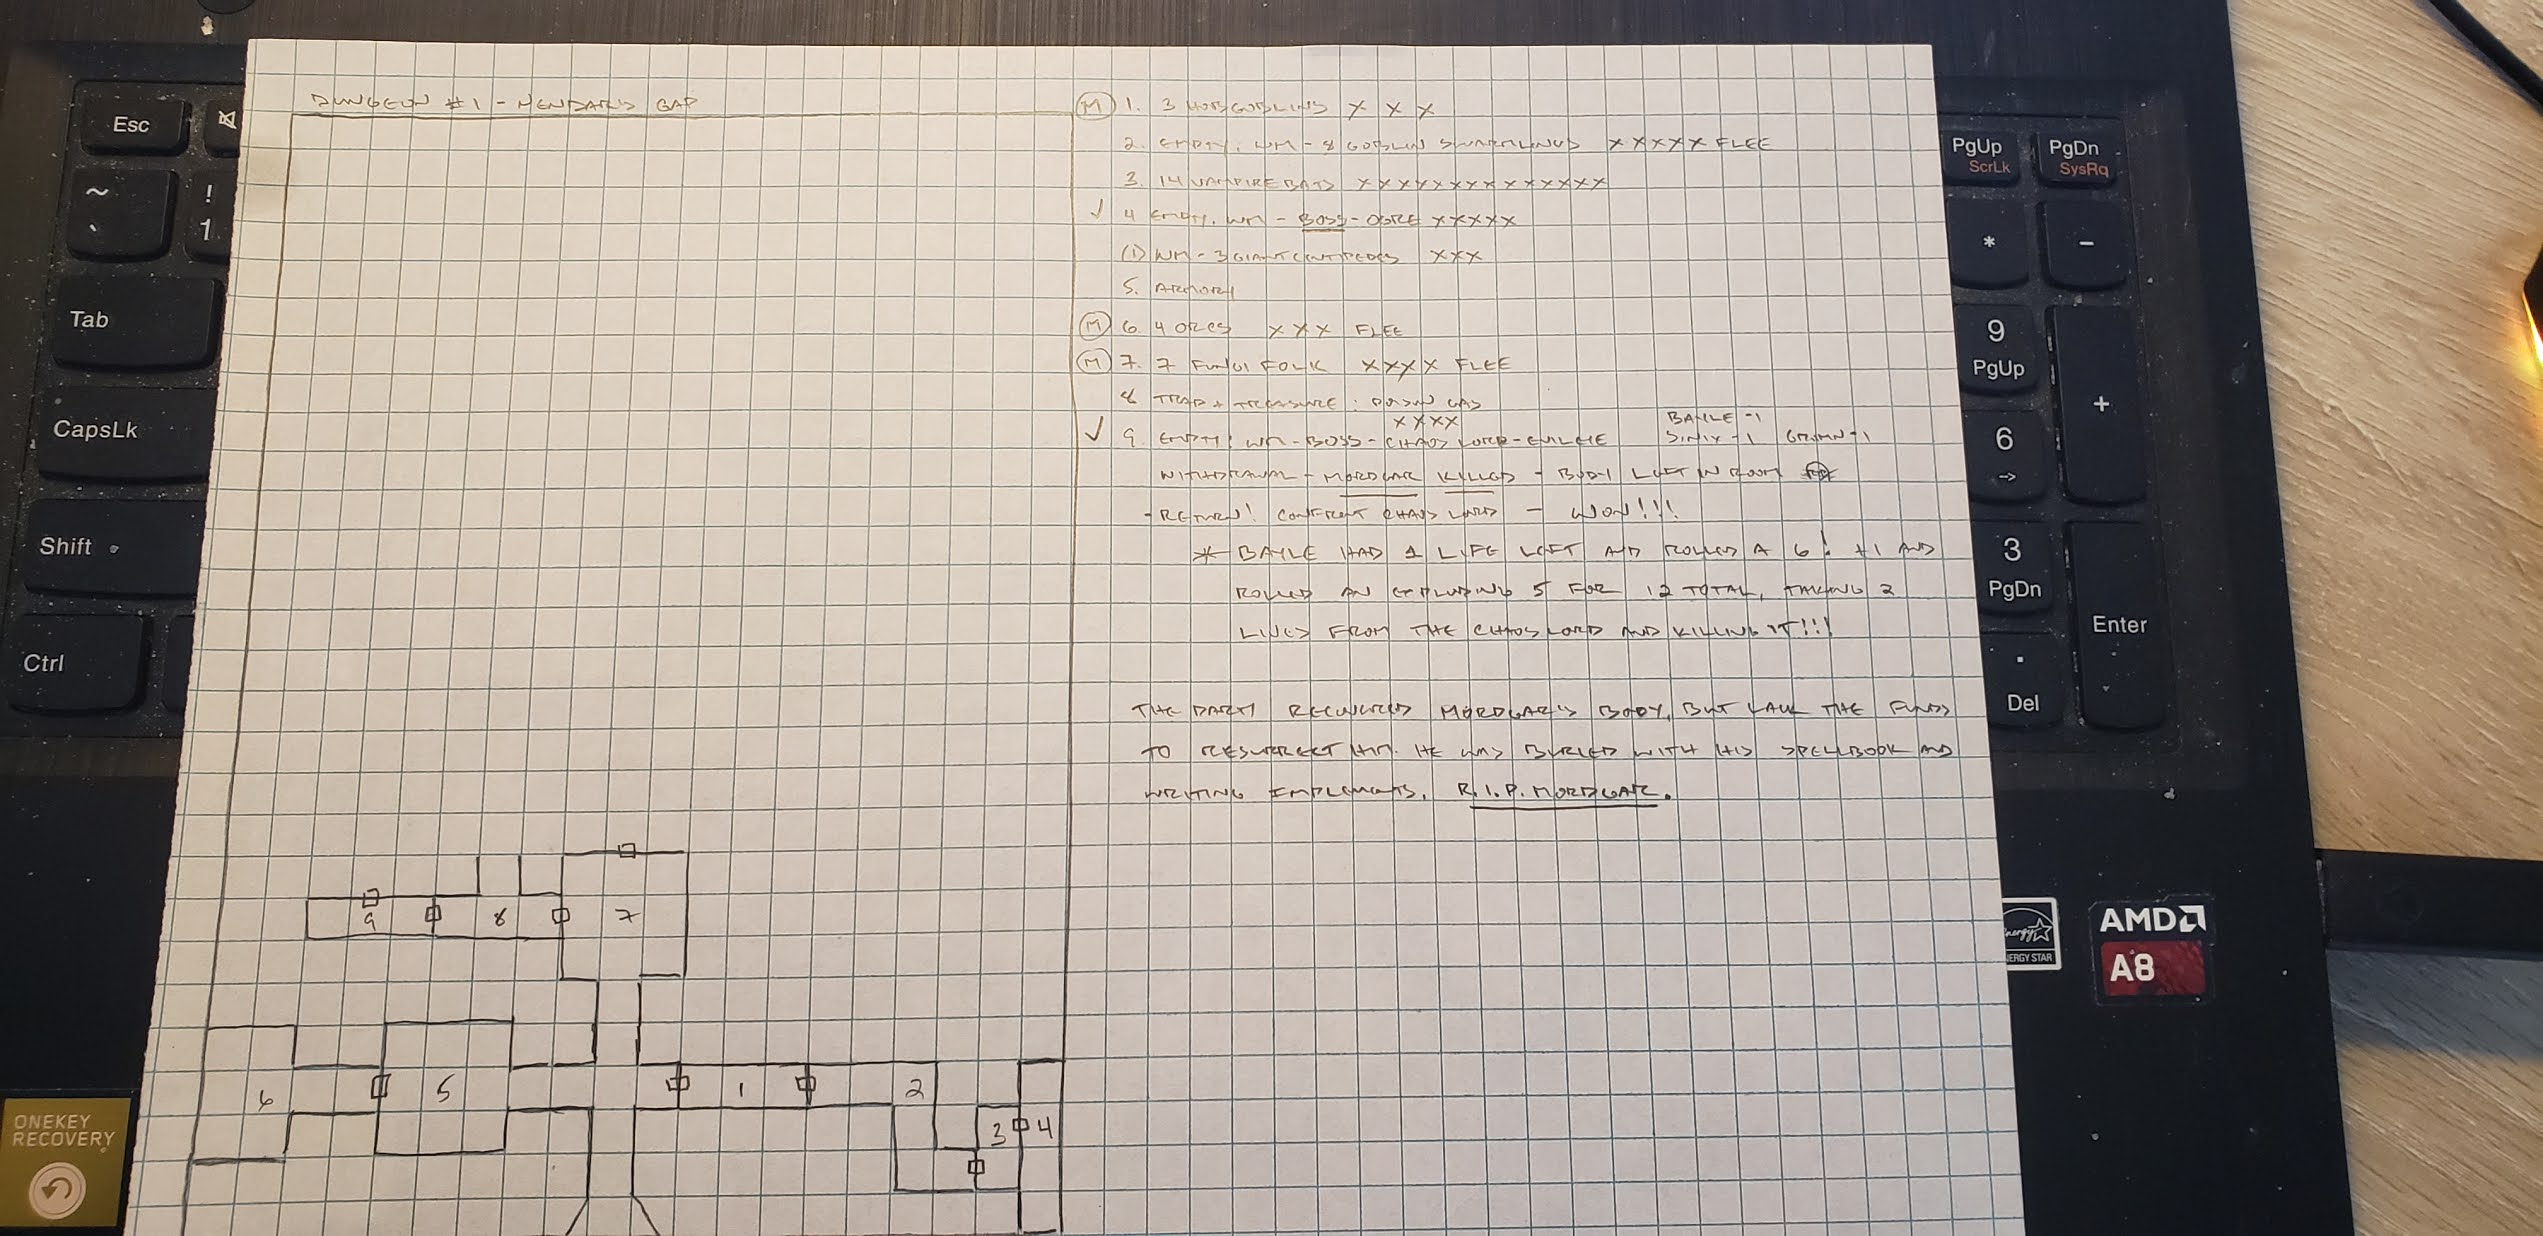 DUNGEON #1 - MENDARK'S GAP
(M) 1. 3 HOBGOBLINS X X X
2. EMPTY. WM - 8 GOBLIN SWARMLINGS X X X X X FLEE
3. 14 VAMPIRE BATS X X X X X X X X X X X X X X
✓ 4 EMPTY. WM - BOSS - OGRE X X X X X
(1) WM - 3 GIANT CENTIPEDES X X X
5. ARMORY
(M) 6. 4 ORCS X X X FLEE
(M) 7. 7 FUNGI FOLK X X X X FLEE
8 TRAP + TREASURE: POISON GAS
X X X X
BAYLE -1
✓ 9. EMPTY; WM - BOSS - CHAOS LORD - EVIL EYE
-1
-1
WITHDRAWAL - MORDGAR KILLED - BODY LEFT IN ROOM
- RETURN! CONFRONT CHAOS LORD - WON!!!
* BAYLE HAD 1 LIFE LEFT AND ROLLED A 6! +1 AND
ROLLED AN EXPLODING 5 FOR 12 TOTAL, TAKING 2
LIVES FROM THE CHAOS LORD AND KILLING IT!!!
THE PARTY RECOVERED MORDGAR'S BODY, BUT LACK THE FUNDS
TO RESURRECT HIM. HE WAS BURIED WITH HIS SPELLBOOK AND
WRITING IMPLEMENTS. R.I.P. MORDGAR.
9 8 7
6 5 1 2
3 4
Esc
~
`
!
1
Tab
CapsLk
Shift
Ctrl
PgUp
ScrLk
PgDn
SysRq
*
-
9
PgUp
+
6
->
3
PgDn
Enter
.
Del
ENERGY STAR
AMD
A8
ONEKEY
RECOVERY